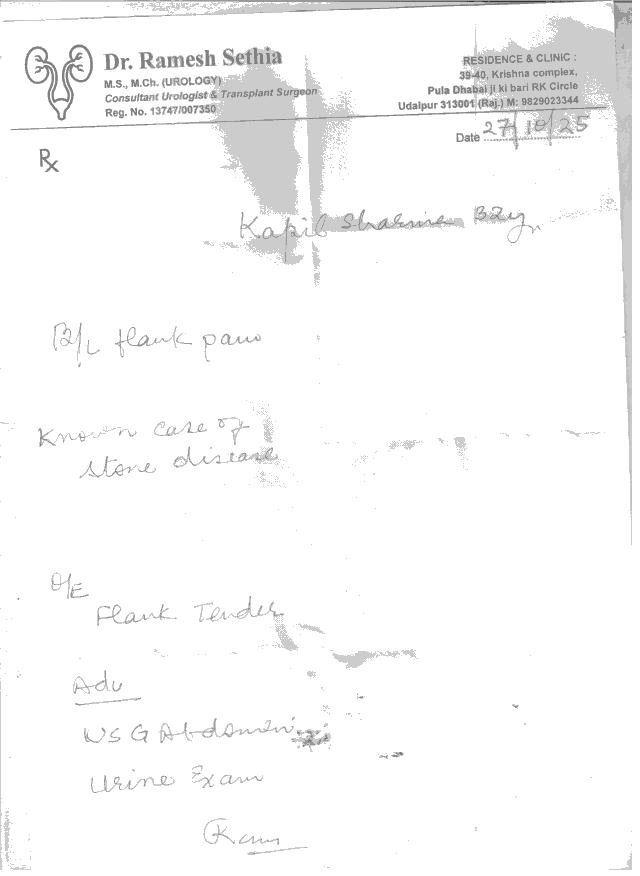 Dr. Ramesh Sethia
M.S., M.Ch. (UROLOGY)
Consultant Urologist & Transplant Surgeon
Reg. No. 13747/007350
RESIDENCE & CLINIC :
39-40, Krishna complex,
Pula Dhabai ji ki bari RK Circle
Udaipur 313001 (Raj.) M: 9829023344
Date 27/10/25
Rx
Kapil Sharma 32y
B/L flank pain
Known case of
stone disease
O/E
Flank Tender
Adv
USG Abdomen
Urine Exam